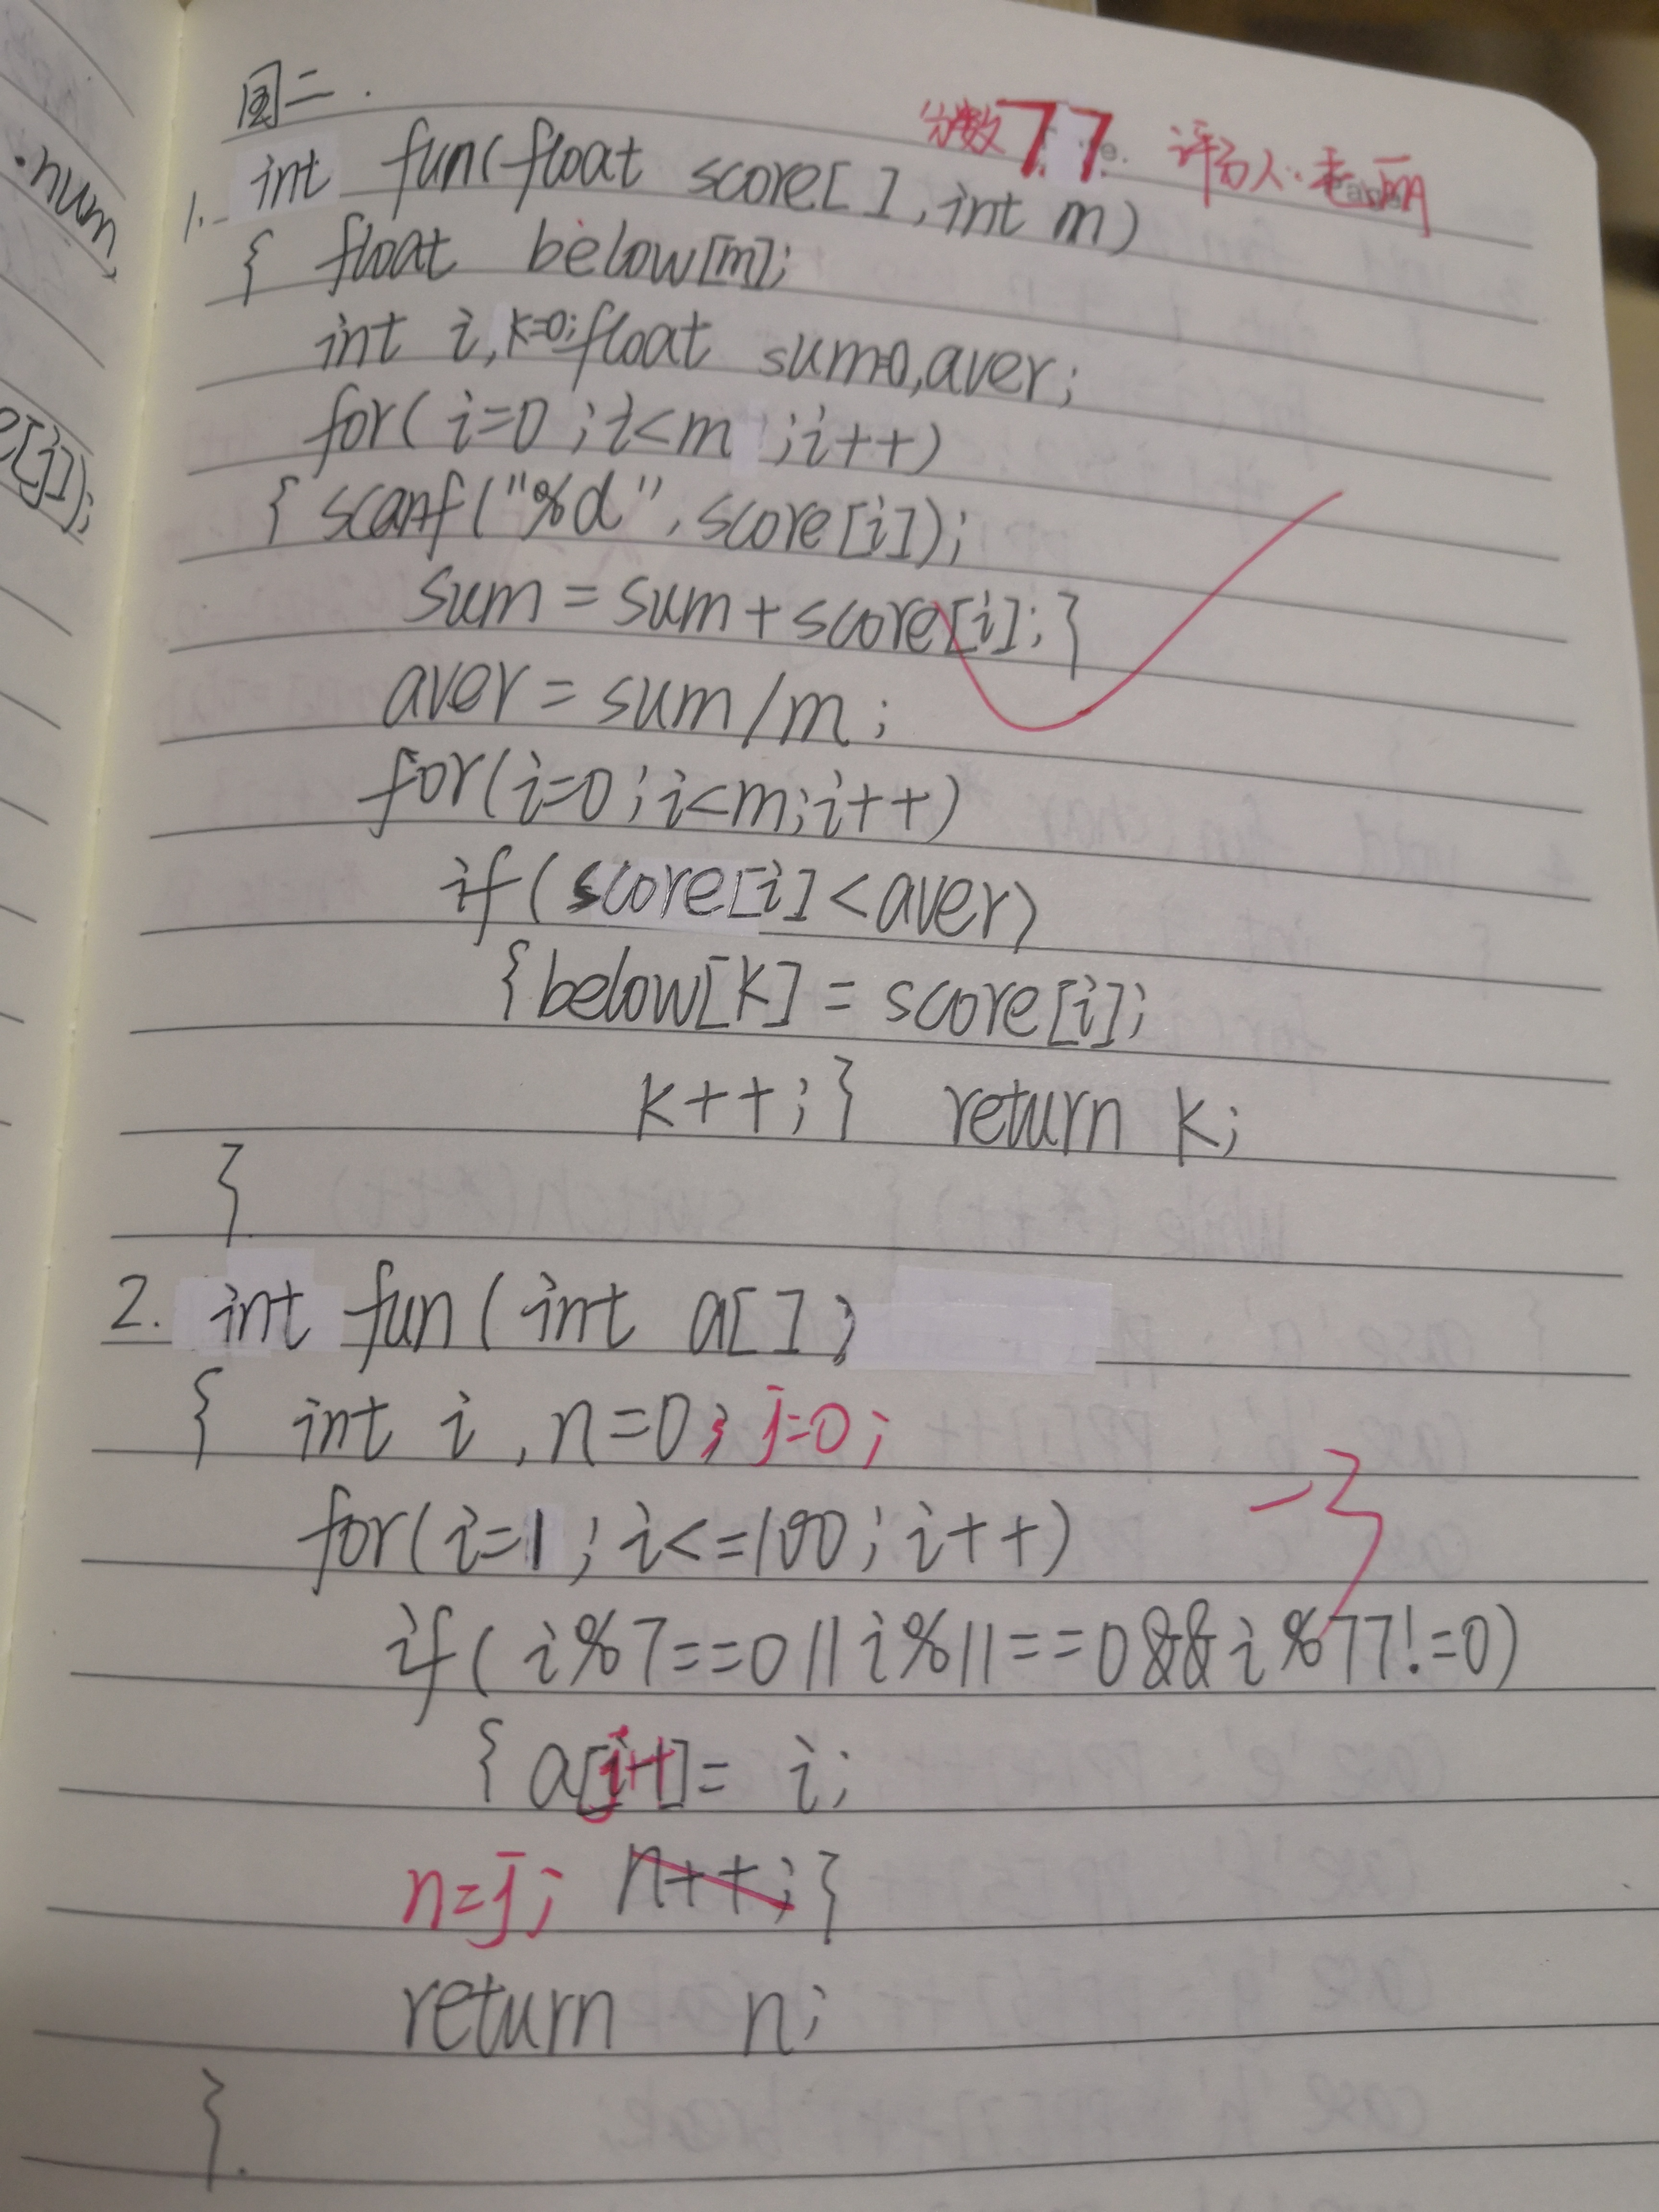 周二.
分数77 评分人:
1. int fun(float score[ ],int m)
{ float below[m];
int i,k=0;float sum=0,aver;
for(i=0;i<m;i++)
{ scanf("%d",score[i]);
sum=sum+score[i];}
aver=sum/m;
for(i=0;i<m;i++)
if(score[i]<aver)
{below[k]=score[i];
k++;} return k;
}
2. int fun(int a[])
{ int i,n=0; j=0;
-3
for(i=1;i<=100;i++)
if(i%7==0||i%11==0&&i%77!=0)
{a[j++]=i;
n=j; n++;}
return n;
}.
num
[j]);